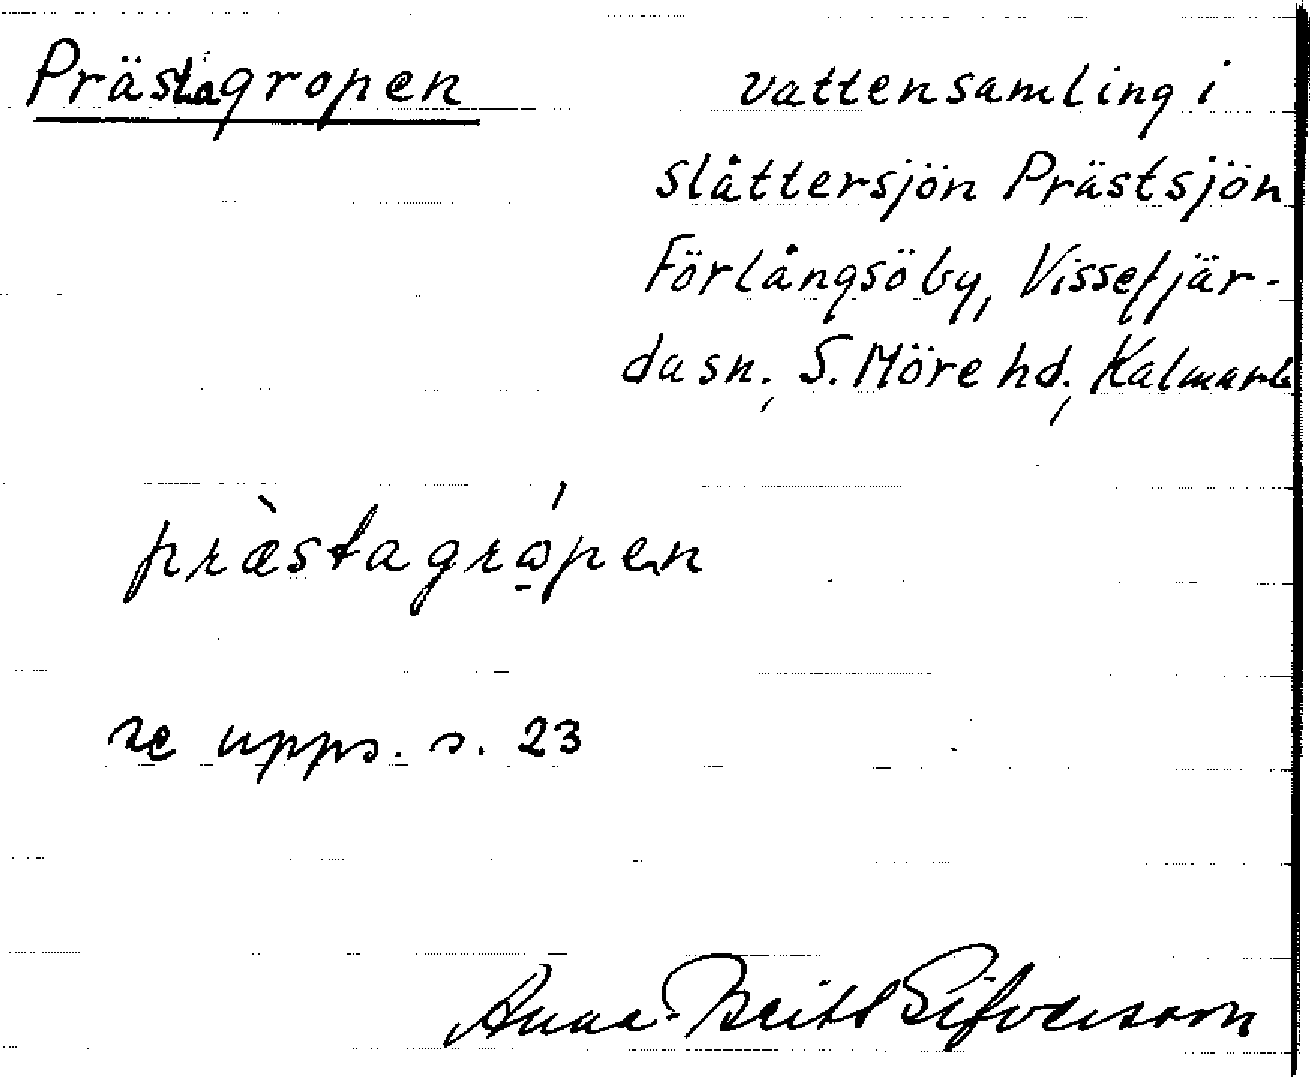 Prästagropen vattensamling i
slåttersjön Prästsjön
Förlångsö by, Vissefjär-
da sn., S. Möre hd., Kalmar l
præ̀stagrópen
se upps. s. 23
Anna-Britt Sifversson